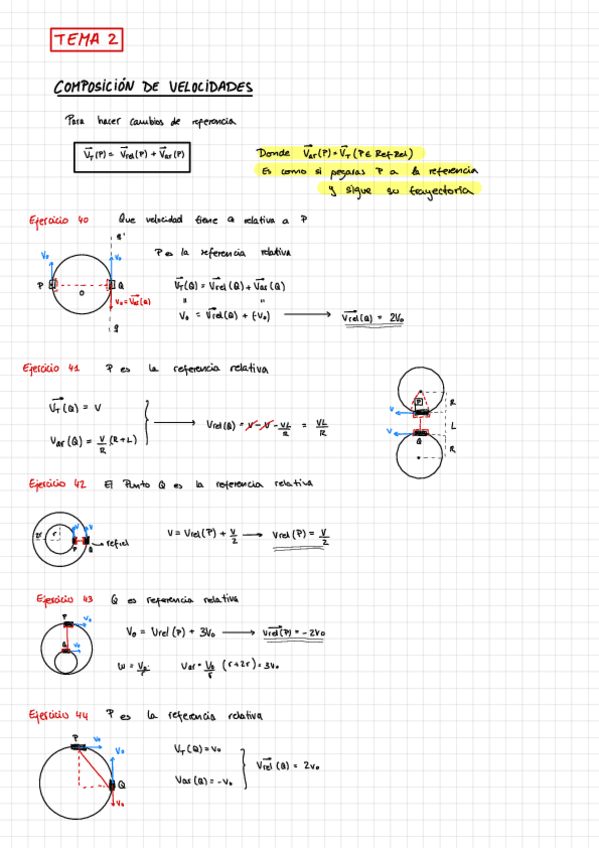 TEMA 2
COMPOSICIÓN DE VELOCIDADES
Para hacer cambios de referencia
V⃗T(P) = V⃗rel(P) + V⃗ar(P)
Donde V⃗ar(P) = V⃗T (P ∈ Ref Rel)
Es como si pegaras P a la referencia
y sigue su trayectoria
Ejercicio 40 Que velocidad tiene Q relativa a P
P es la referencia relativa
V⃗T(Q) = V⃗rel(Q) + V⃗ar(Q)
V₀ = V⃗rel(Q) + (-V₀) → V⃗rel(Q) = 2V₀
V₀ V₀
P O Q
V₀ = V⃗ar(Q)
Ejercicio 41 P es la referencia relativa
V⃗T(Q) = V
Var(Q) = V/R (R+L)
Vrel(Q) = V - V - VL/R = VL/R
P R
V
L
V
Q R
Ejercicio 42 El Punto Q es la referencia relativa
V = Vrel(P) + V/2 → Vrel(P) = V/2
2r r V V
P Q ref rel
Ejercicio 43 Q es referencia relativa
V₀ = Vrel(P) + 3V₀ → V⃗rel(P) = -2V₀
ω = V₀/r Var = V₀/r (r+2r) = 3V₀
P V₀
Q V₀
Ejercicio 44 P es la referencia relativa
VT(Q) = V₀
Var(Q) = -V₀
V⃗rel(Q) = 2V₀
P V₀
V₀
Q
V₀